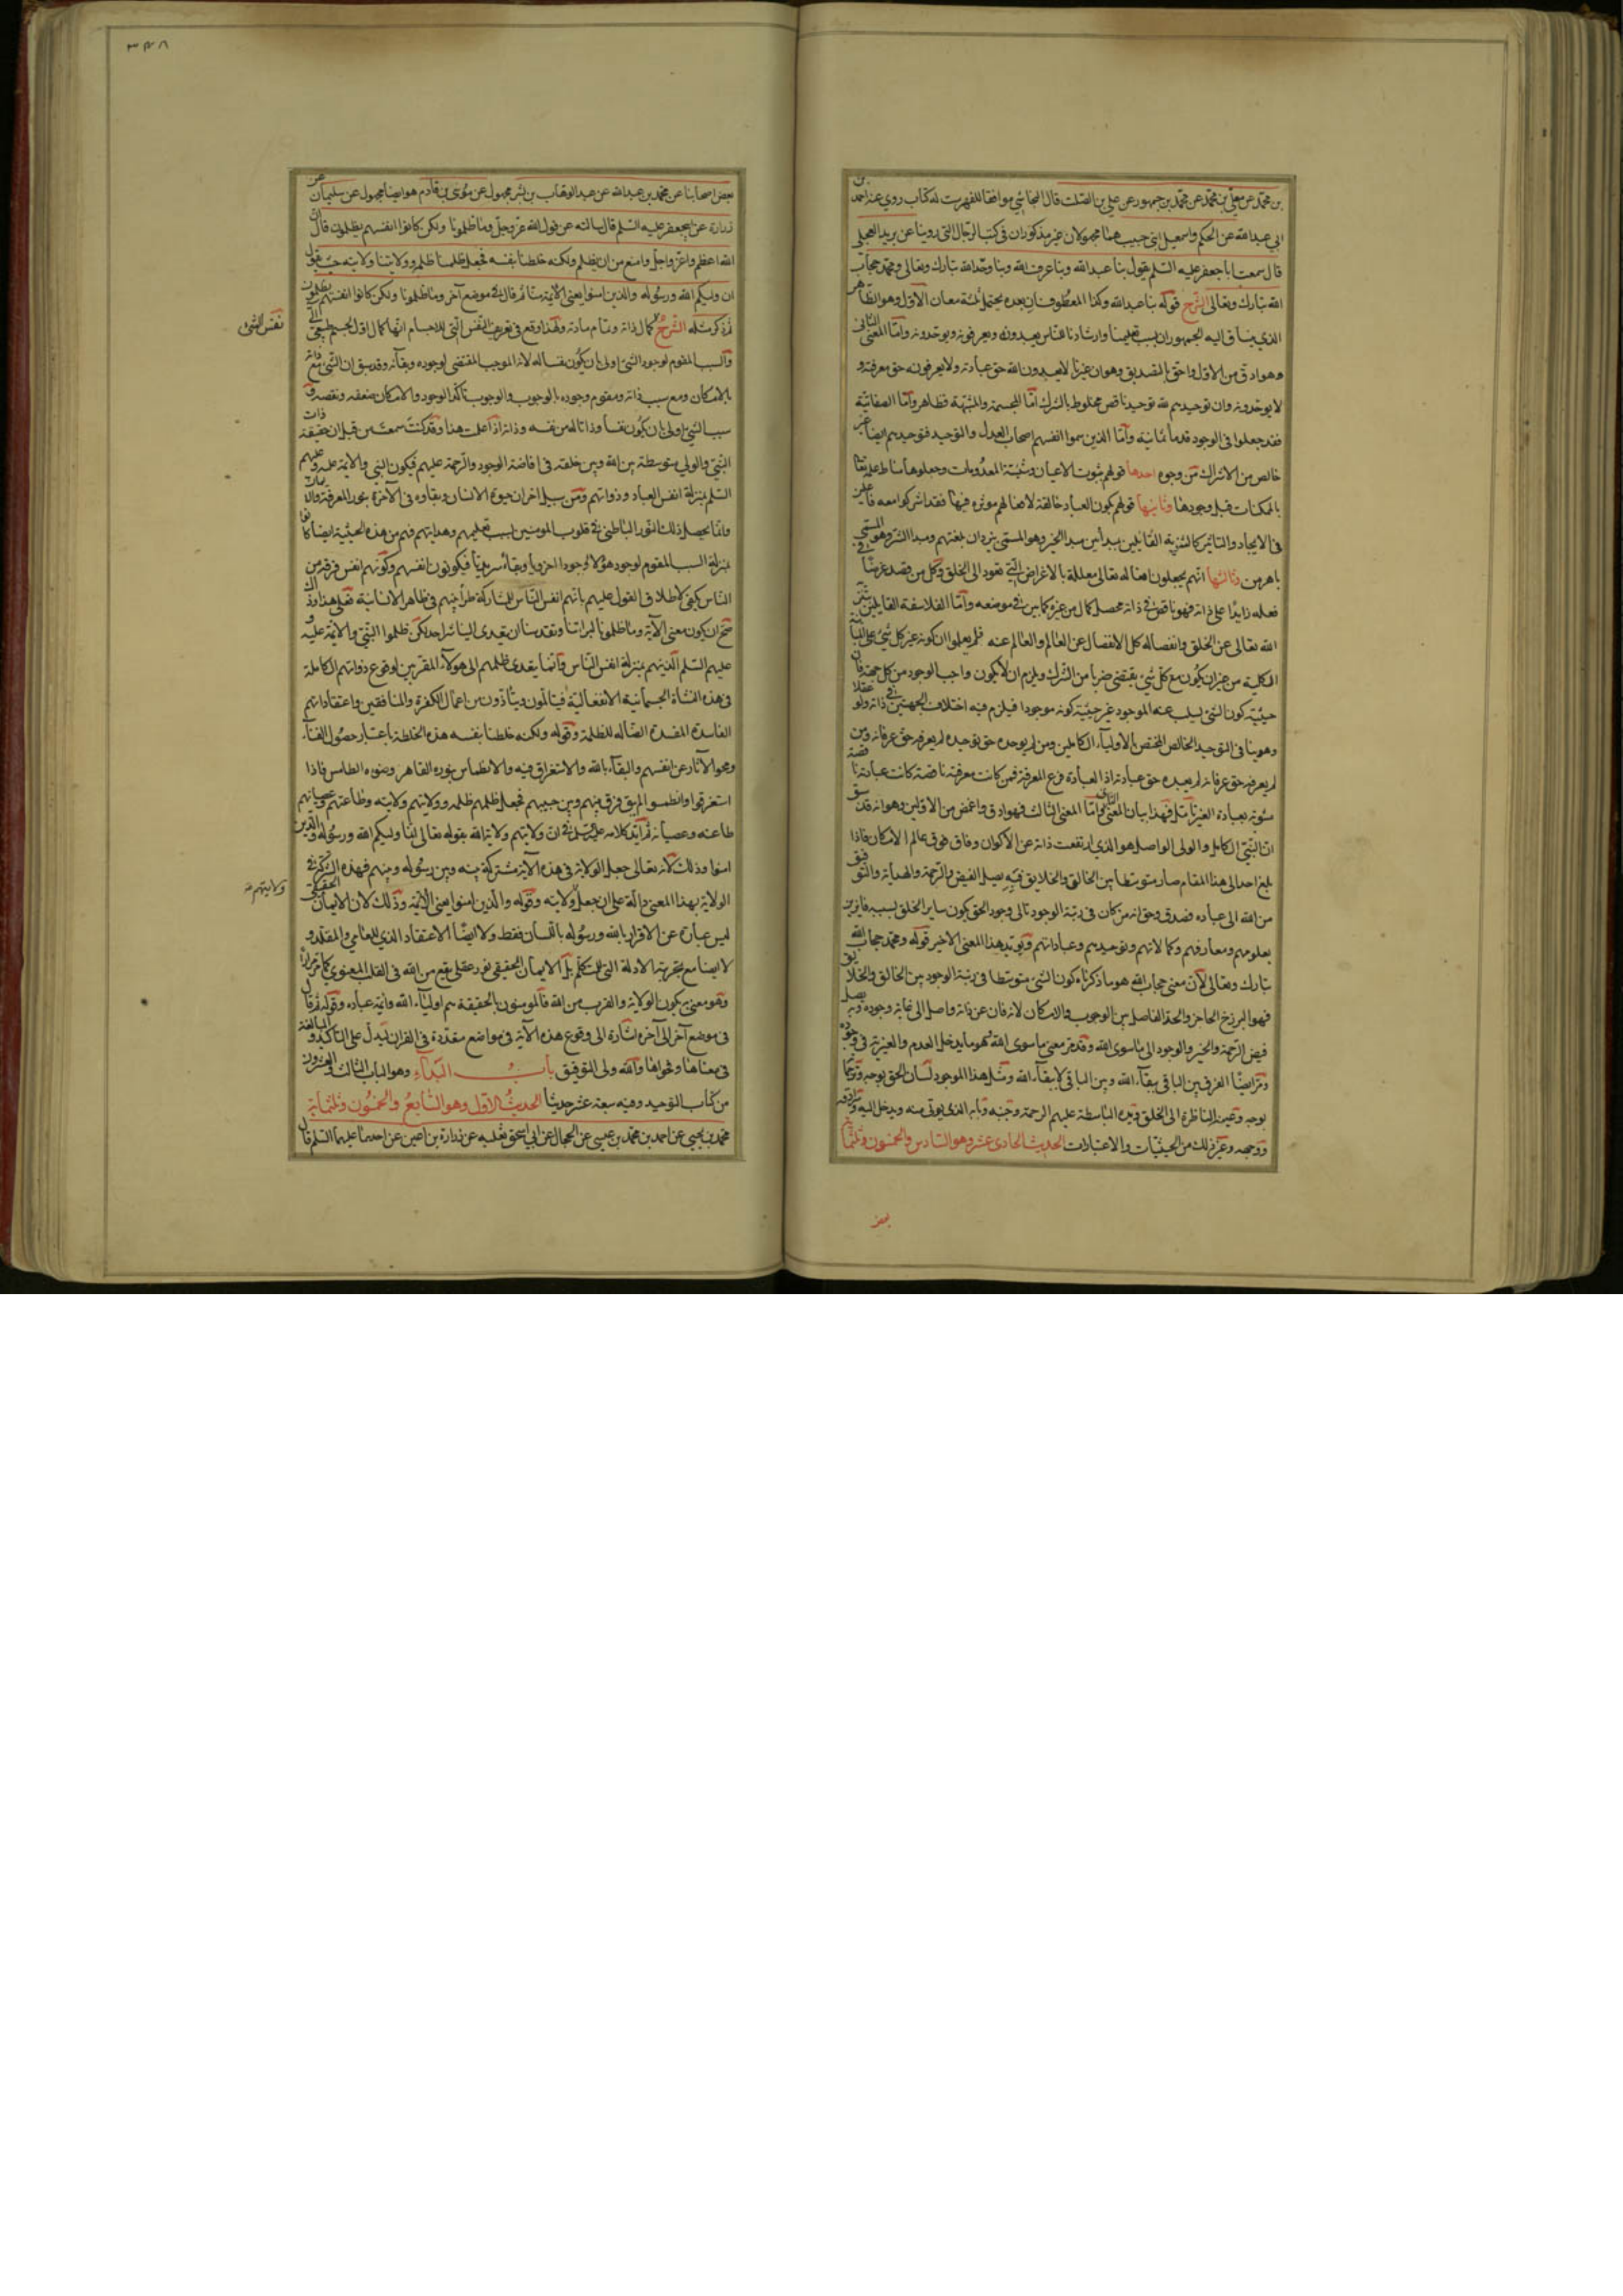 بن محمد عن معلى بن محمد عن محمد بن جمهور عن علي بن الصلت قال النجاشي موافقا للفهرست له كتاب روي عنه احمد بن
ابي عبد الله عن الحكم واسمعيل ابني حبيب هما مجهولان غير مذكوران في كتب الرجال التي روينا عن بريد العجلي
قال سمعت ابا جعفر عليه السلم يقول بنا عبد الله وبنا عرف الله وبنا وحد الله تبارك وتعالى ومحمد حجاب
الله تبارك وتعالى الشرح قوله بنا عبد الله وكذا المعطوفان بعده يحتمل ثلثة معان الاول وهو الظاهر
الذي ينساق اليه الجمهور ان بسبب تعليمنا وارشادنا للناس يعبدونه ويعرفونه ويوحدونه واما المعنى الثاني
وهو ادق من الاول واحق بالتصديق وهو ان غيرنا لا يعبدون الله حق عبادته ولا يعرفونه حق معرفته و
لا يوحدونه وان توحيدهم لله توحيد ناقص مخلوط بالشرك اما المجسمة والمشبهة فظاهر واما الصفاتية
فقد جعلوا في الوجود قدماء ثمانية واما الذين سموا انفسهم اصحاب العدل والتوحيد فتوحيدهم ايضا غير
خالص من الاشراك من وجوه احدها قولهم بثبوت الاعيان وشيئية المعدومات وجعلوها مناط علمه تعالى
بالممكنات قبل وجودها وثانيها قولهم بكون العباد خالقة لافعالهم موثره فيها فقد اشركوا معه فاعلين
في الايجاد والتاثير كالثنوية القائلين بمبداين مبدا الخير وهو المسمى يزدان بلغتهم ومبدا الشر وهو المسمى
باهرمن وثالثها انهم يجعلون افعاله تعالى معللة بالاغراض التي تعود الى الخلق وكل من قصد غرضا في
فعله زايدا على ذاته فهو ناقص في ذاته محصل كمال من غيره كما بين في موضعه واما الفلاسفة القايلين بتنزيه
الله تعالى عن الخلق وانفصاله كل الانفصال عن العالم والعالم عنه فلم يعلموا ان كونه غير كل شيء على المباينة
الكلية من غير ان يكون مع كل شي يقتضي ضربا من الشرك ويلزم ان لا يكون واجب الوجود من كل جهة فان
حيثية كون الشئ يسلب عنه الموجود غير حيثية كونه موجودا فيلزم فيه اختلاف الجهتين في ذاته ولو عقلا
وهو ينافي التوحيد الخالص المختص بالاولياء الكاملين ومن لم يوحده حق توحيده لم يعرفه حق عرفانه ومن
لم يعرفه حق عرفانه لم يعبده حق عبادته اذ العبادة فرع المعرفة فمن كانت معرفته ناقصة كانت عبادته ناقصة
مشوبة بعبادة الغير تامل فهذا بيان المعنى الثاني واما المعنى الثالث فهو ادق واغمض من الاولين وهو انه قد سبق
ان النبي الكامل والولي الواصل هو الذي ارتفعت ذاته عن الاكوان وفاق فوق عالم الامكان فاذا
بلغ احد الى هذا المقام صار متوسطا بين الخالق والخلايق فبه يصل الفيض والرحمة والهداية والتوفيق
من الله الى عباده فصدق وحق انه من كان في رتبة الوجود تالي وجود الحق يكون ساير الخلق بسببه فايزين
بعلومهم ومعارفهم وكمالاتهم وتوحيدهم وعباداتهم ويويد هذا المعنى الاخير قوله ومحمد حجاب الله
تبارك وتعالى لان معنى حجاب الله هو ما ذكرناه كون الشئ متوسطا في رتبة الوجود بين الخالق والخلايق
فهو البرزخ الحاجز والحد الفاصل بين الوجوب والامكان لانه فان عن ذاته واصل الى غاية وجوده وبه يصل
فيض الرحمة والخير والوجود الى ما سوى الله وقد مر معنى ما سوى الله هو ما يدخل العدم والغيرية في وجوده
ومر ايضا الفرق بين الباقي ببقاء الله وبين الباقي لابقاء الله ومثل هذا الموجود لسان الحق بوجه وترجمانه
بوجه وعينه الناظرة الى الخلق ويده الباسطة عليهم الرحمة وجنبه وبابه الذي يوتى منه ويدخل اليه وسرادقه
ووجهه وغير ذلك من الحيثيات والاعتبارات الحديث الحادي عشر وهو السادس والخمسون وثلثمائة
بعض
٣٤٨
بعض اصحابنا عن محمد بن عبد الله عن عبد الوهاب بن بشر مجهول عن موسى بن قادم هو ايضا مجهول عن سليمان عن
زرارة عن ابي جعفر عليه السلم قال سالته عن قول الله عز وجل وما ظلمونا ولكن كانوا انفسهم يظلمون قال ان
الله اعظم واعز واجل وامنع من ان يظلم ولكنه خلطنا بنفسه فجعل ظلمنا ظلمه وولايتنا ولايته حيث يقول
ان وليكم الله ورسوله والذين امنوا يعني الائمة منا ثم قال في موضع آخر وما ظلمونا ولكن كانوا انفسهم يظلمون
ثم ذكر مثله الشرح كمال ذاته وتمام ماهيته ولهذا وقع في تعريف النفس التي للاجسام انها كمال اول لجسم طبيعي آلي
نفس الشئ
والسبب المقوم لوجود الشئ اولى بان يكون نفسا له لانه الموجب المقتضي لوجوده وبقائه وقد سبق ان الشئ مع ذاته
بالامكان ومع سبب ذاته ومقوم وجوده بالوجوب والوجوب تاكد الوجود والامكان ضعفه ونقصه
سبب الشئ اولى بان يكون نفسا وذاتا له من نفسه وذاته اذا علمت هذا وقد كنت سمعت من قبل ان حقيقة ذات
النبي والولي متوسطة بين الله وبين خلقه في افاضة الوجود والرحمة عليهم فيكون النبي والائمة عليه وعليهم
السلم بمنزلة انفس العباد وذواتهم ومن سبيل اخر ان حيوة الانسان وبقاوه في الآخرة بنور المعرفة والايمان
وانما يحصل ذلك النور الباطني في قلوب المومنين بسبب تعليمهم وهدايتهم فهم من هذه الحيثية ايضا كانوا
بمنزلة السبب المقوم لوجود هولاء وجودا اخرويا وبقاء سرمديا فيكونون انفسهم وكونهم انفس فرقة من
الناس يكفي لاطلاق القول عليهم بانهم انفس الناس للمشاركة طرا بينهم في ظاهر الانسانية فعلى هذا وذاك
صح ان يكون معنى الآية وما ظلمونا لبراتنا وتقدسنا ان يتعدى الينا شر احد لكن ظلموا النبي والائمة عليه و
عليهم السلم الذينهم بمنزلة انفس الناس وانما يتعدى ظلمهم الى هولاء المقربين لوقوع ذواتهم الكاملة
في هذه النشاة الجسمانية الانفعالية فيتالمون ويتاذون من اعمال الكفرة والمنافقين واعتقاداتهم
الفاسدة المفسدة الضالة المظلمة وقوله ولكنه خلطنا بنفسه هذه الخلطة باعتبار حصول الفناء
ومحو الآثار عن انفسهم والبقاء بالله والاستغراق فيه والانطماس بنوره القاهر وضوءه الطامس فاذا
استغرقوا وانطمسوا لم يبق فرق بينهم وبين حبيبهم فجعل ظلمهم ظلمه وولايتهم ولايته وطاعتهم وعصيانهم
طاعته وعصيانه ثم ايد كلامه في ان ولايتهم ولاية الله بقوله تعالى انما وليكم الله ورسوله والذين
امنوا وذلك لانه تعالى جعل الولاية في هذه الآية مشتركة بينه وبين رسوله وبينهم فهذه الشركة في
الولاية بهذا المعنى دالة على ان جعل ولايته وقوله والذين امنوا يعني الائمة وذلك لان الايمان الحقيقي
ولايتهم
ليس عبارة عن الاقرار بالله ورسوله باللسان فقط ولا ايضا الاعتقاد الذي للعامي والمقلد و
لا ايضا مع تجربة الادلة التي للمتكلم بل الايمان الحقيقي نور عقلي يقع من الله في القلب المعنوي كما مر مرارا
وهو معنى به يكون الولاية والقرب من الله فالمومنون بالحقيقة هم اولياء الله وائمة عباده وقوله ثم قال
في موضع آخر الى آخره اشارة الى وقوع هذه الآية في مواضع متعددة في القران ليدل على التاكيد والمبالغة
في معناها وفحواها والله ولي التوفيق باب البداء وهو الباب الثالث والعشرون
من كتاب التوحيد وفيه سبعة عشر حديثا الحديث الاول وهو السابع والخمسون وثلثماية
محمد بن يحيى عن احمد بن محمد بن عيسى عن الحجال عن ابي اسحق ثعلبه عن زرارة بن اعين عن احدهما عليهما السلم قال